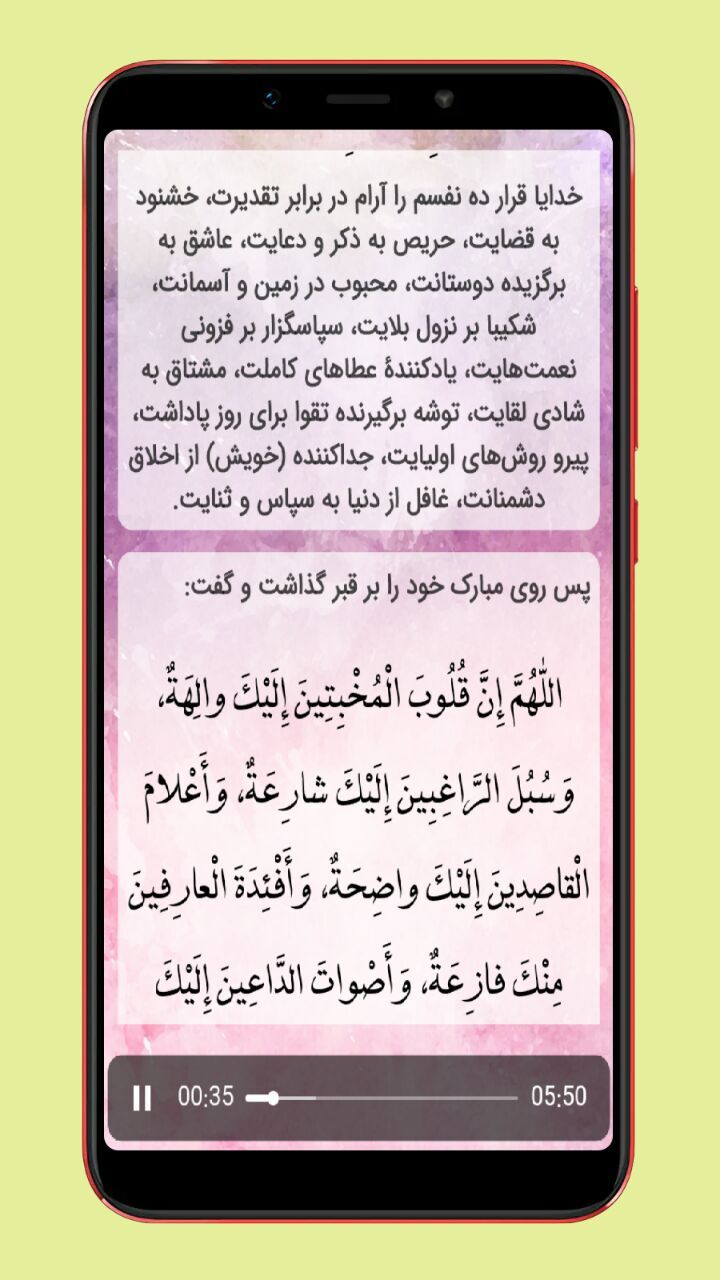 خدایا قرار ده نفسم را آرام در برابر تقدیرت، خشنود
به قضایت، حریص به ذکر و دعایت، عاشق به
برگزیده دوستانت، محبوب در زمین و آسمانت،
شکیبا بر نزول بلایت، سپاسگزار بر فزونی
نعمت‌هایت، یادکنندهٔ عطاهای کاملت، مشتاق به
شادی لقایت، توشه برگیرنده تقوا برای روز پاداشت،
پیرو روش‌های اولیایت، جداکننده (خویش) از اخلاق
دشمنانت، غافل از دنیا به سپاس و ثنایت.
پس روی مبارک خود را بر قبر گذاشت و گفت:
اللّٰهُمَّ إِنَّ قُلُوبَ الْمُخْبِتِينَ إِلَيْكَ والِهَةٌ،
وَسُبُلَ الرَّاغِبِينَ إِلَيْكَ شارِعَةٌ، وَأَعْلامَ
الْقاصِدِينَ إِلَيْكَ واضِحَةٌ، وَأَفْئِدَةَ الْعارِفِينَ
مِنْكَ فازِعَةٌ، وَأَصْواتَ الدَّاعِينَ إِلَيْكَ
00:35 05:50